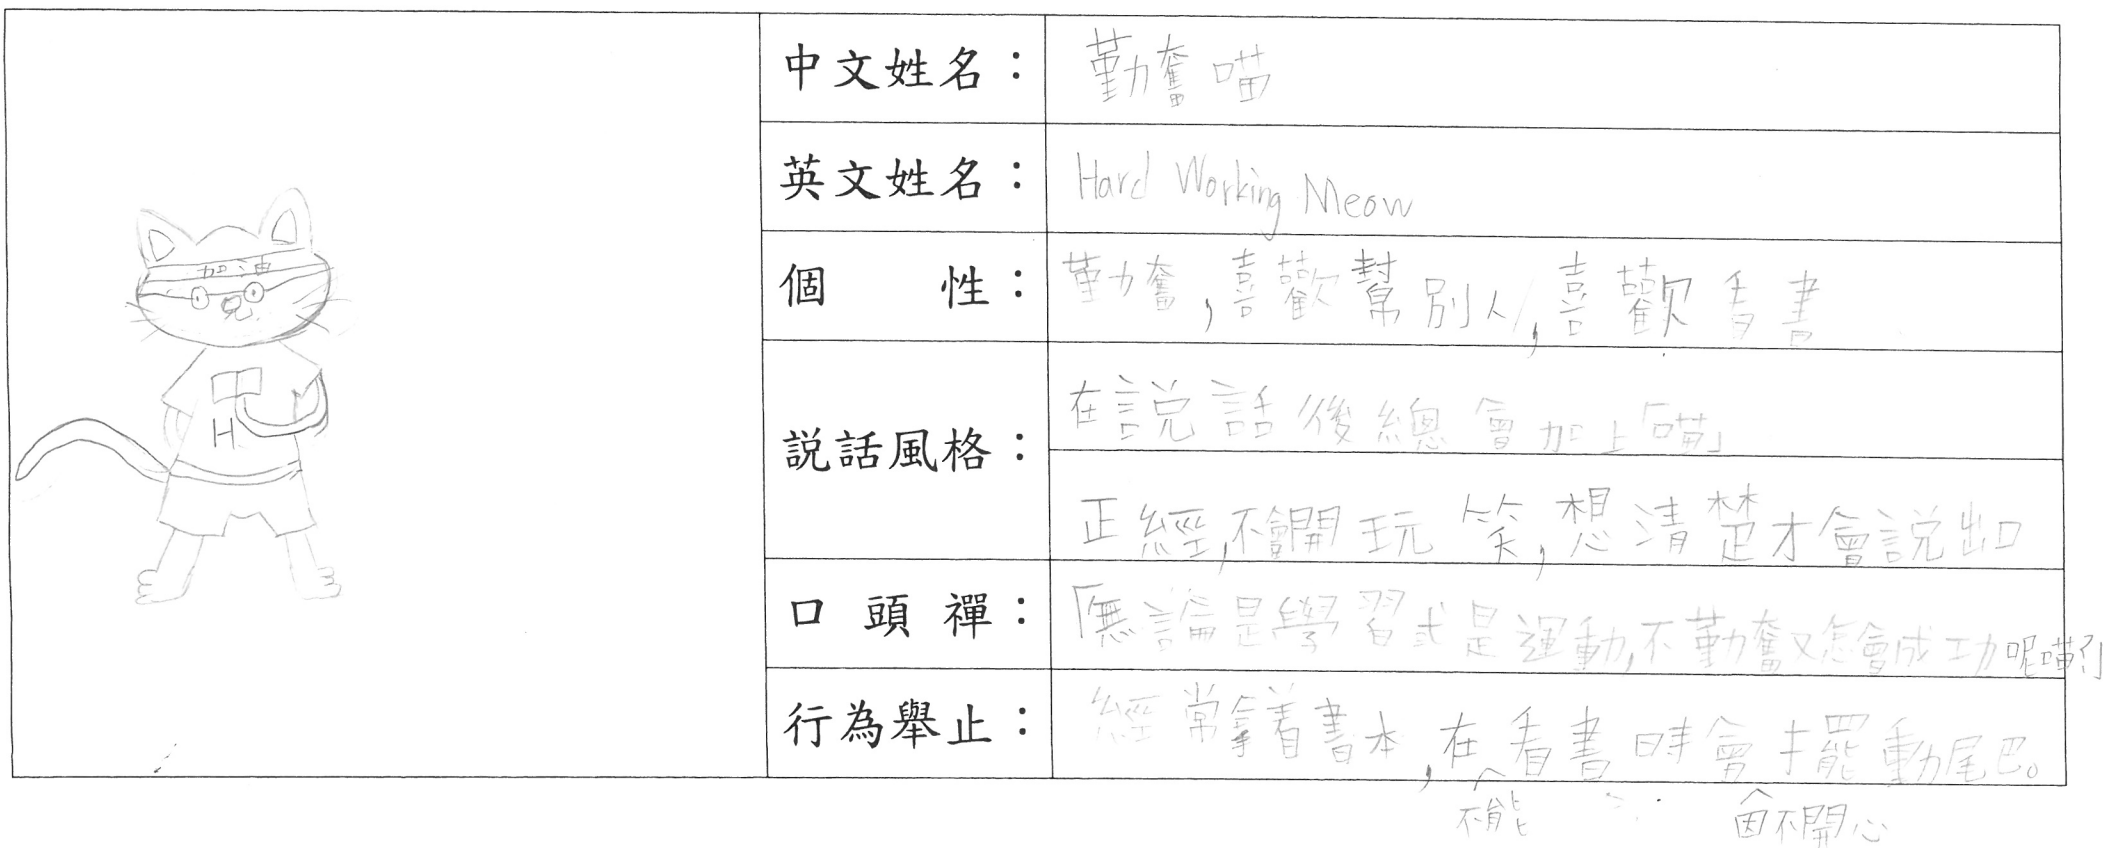 加油
H
中文姓名：勤奮喵
英文姓名：Hard Working Meow
個性：勤奮,喜歡幫別人,喜歡看書
說話風格：在說話後總會加上「喵」
正經,不會開玩笑,想清楚才會說出口
口頭禪：「無論是學習或是運動,不勤奮又怎會成功呢喵」
行為舉止：經常拿着書本,在看書時會擺動尾巴。
不能
因不開心